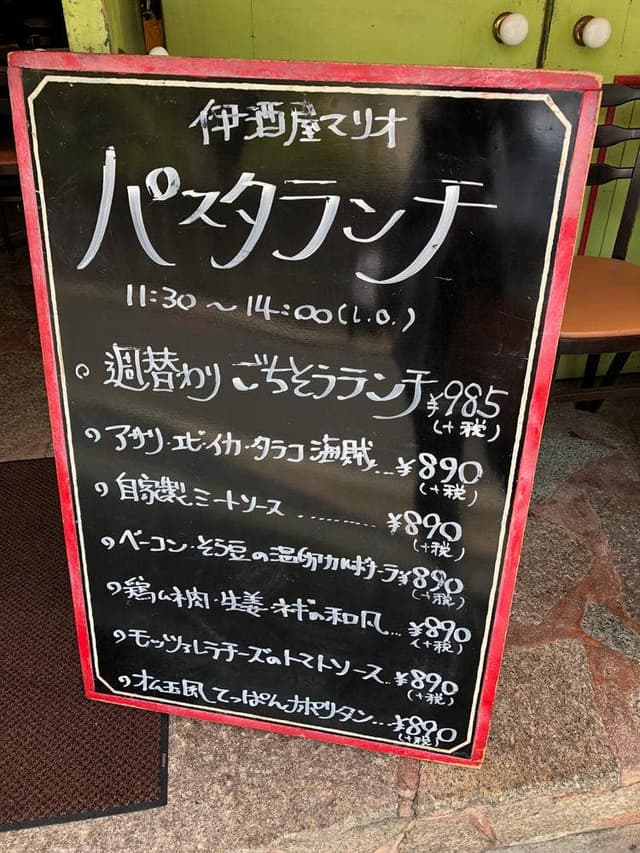 伊酒屋マリオ
パスタランチ
11:30〜14:00(L.O.)
週替わり ごちそうランチ ¥985
(+税)
アサリ・エビ・イカ・タラコ 海賊...¥890
(+税)
自家製ミートソース ......... ¥890
(+税)
ベーコン・そら豆の温卵カルボナーラ ¥890
(+税)
鶏ムネ肉・生姜・ネギの和風...¥890
(+税)
モッツァレラチーズのトマトソース..¥890
(+税)
風てっぱんナポリタン...¥890
(+税)